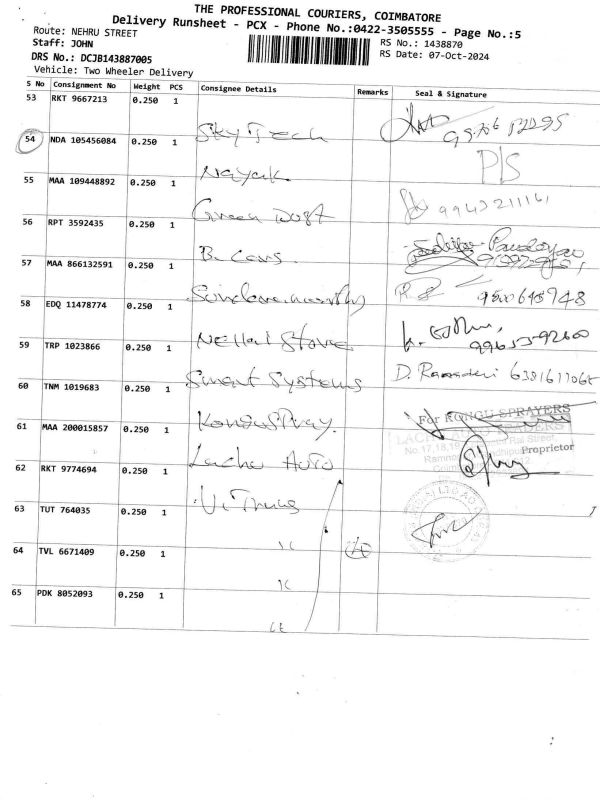 THE PROFESSIONAL COURIERS, COIMBATORE
Delivery Runsheet - PCX - Phone No.:0422-3505555 - Page No.:5
Route: NEHRU STREET
RS No.: 1438870
Staff: JOHN
RS Date: 07-Oct-2024
DRS No.: DCJB143887005
Vehicle: Two Wheeler Delivery
S No Consignment No Weight PCS Consignee Details Remarks Seal & Signature
53 RKT 9667213 0.250 1 Sky Tech
54 NDA 105456084 0.250 1 Nayak P/S
55 MAA 109448892 0.250 1 Green Dost
56 RPT 3592435 0.250 1 B. Cars
57 MAA 866132591 0.250 1 9500645948
58 EDQ 11478774 0.250 1 Nellai Store
59 TRP 1023866 0.250 1 Smart Systems D.
60 TNM 1019683 0.250 1 For KONGU SPRAYERS
61 MAA 200015857 0.250 1 Lachu Auto Proprietor
62 RKT 9774694 0.250 1
63 TUT 764035 0.250 1
64 TVL 6671409 0.250 1
65 PDK 8052093 0.250 1